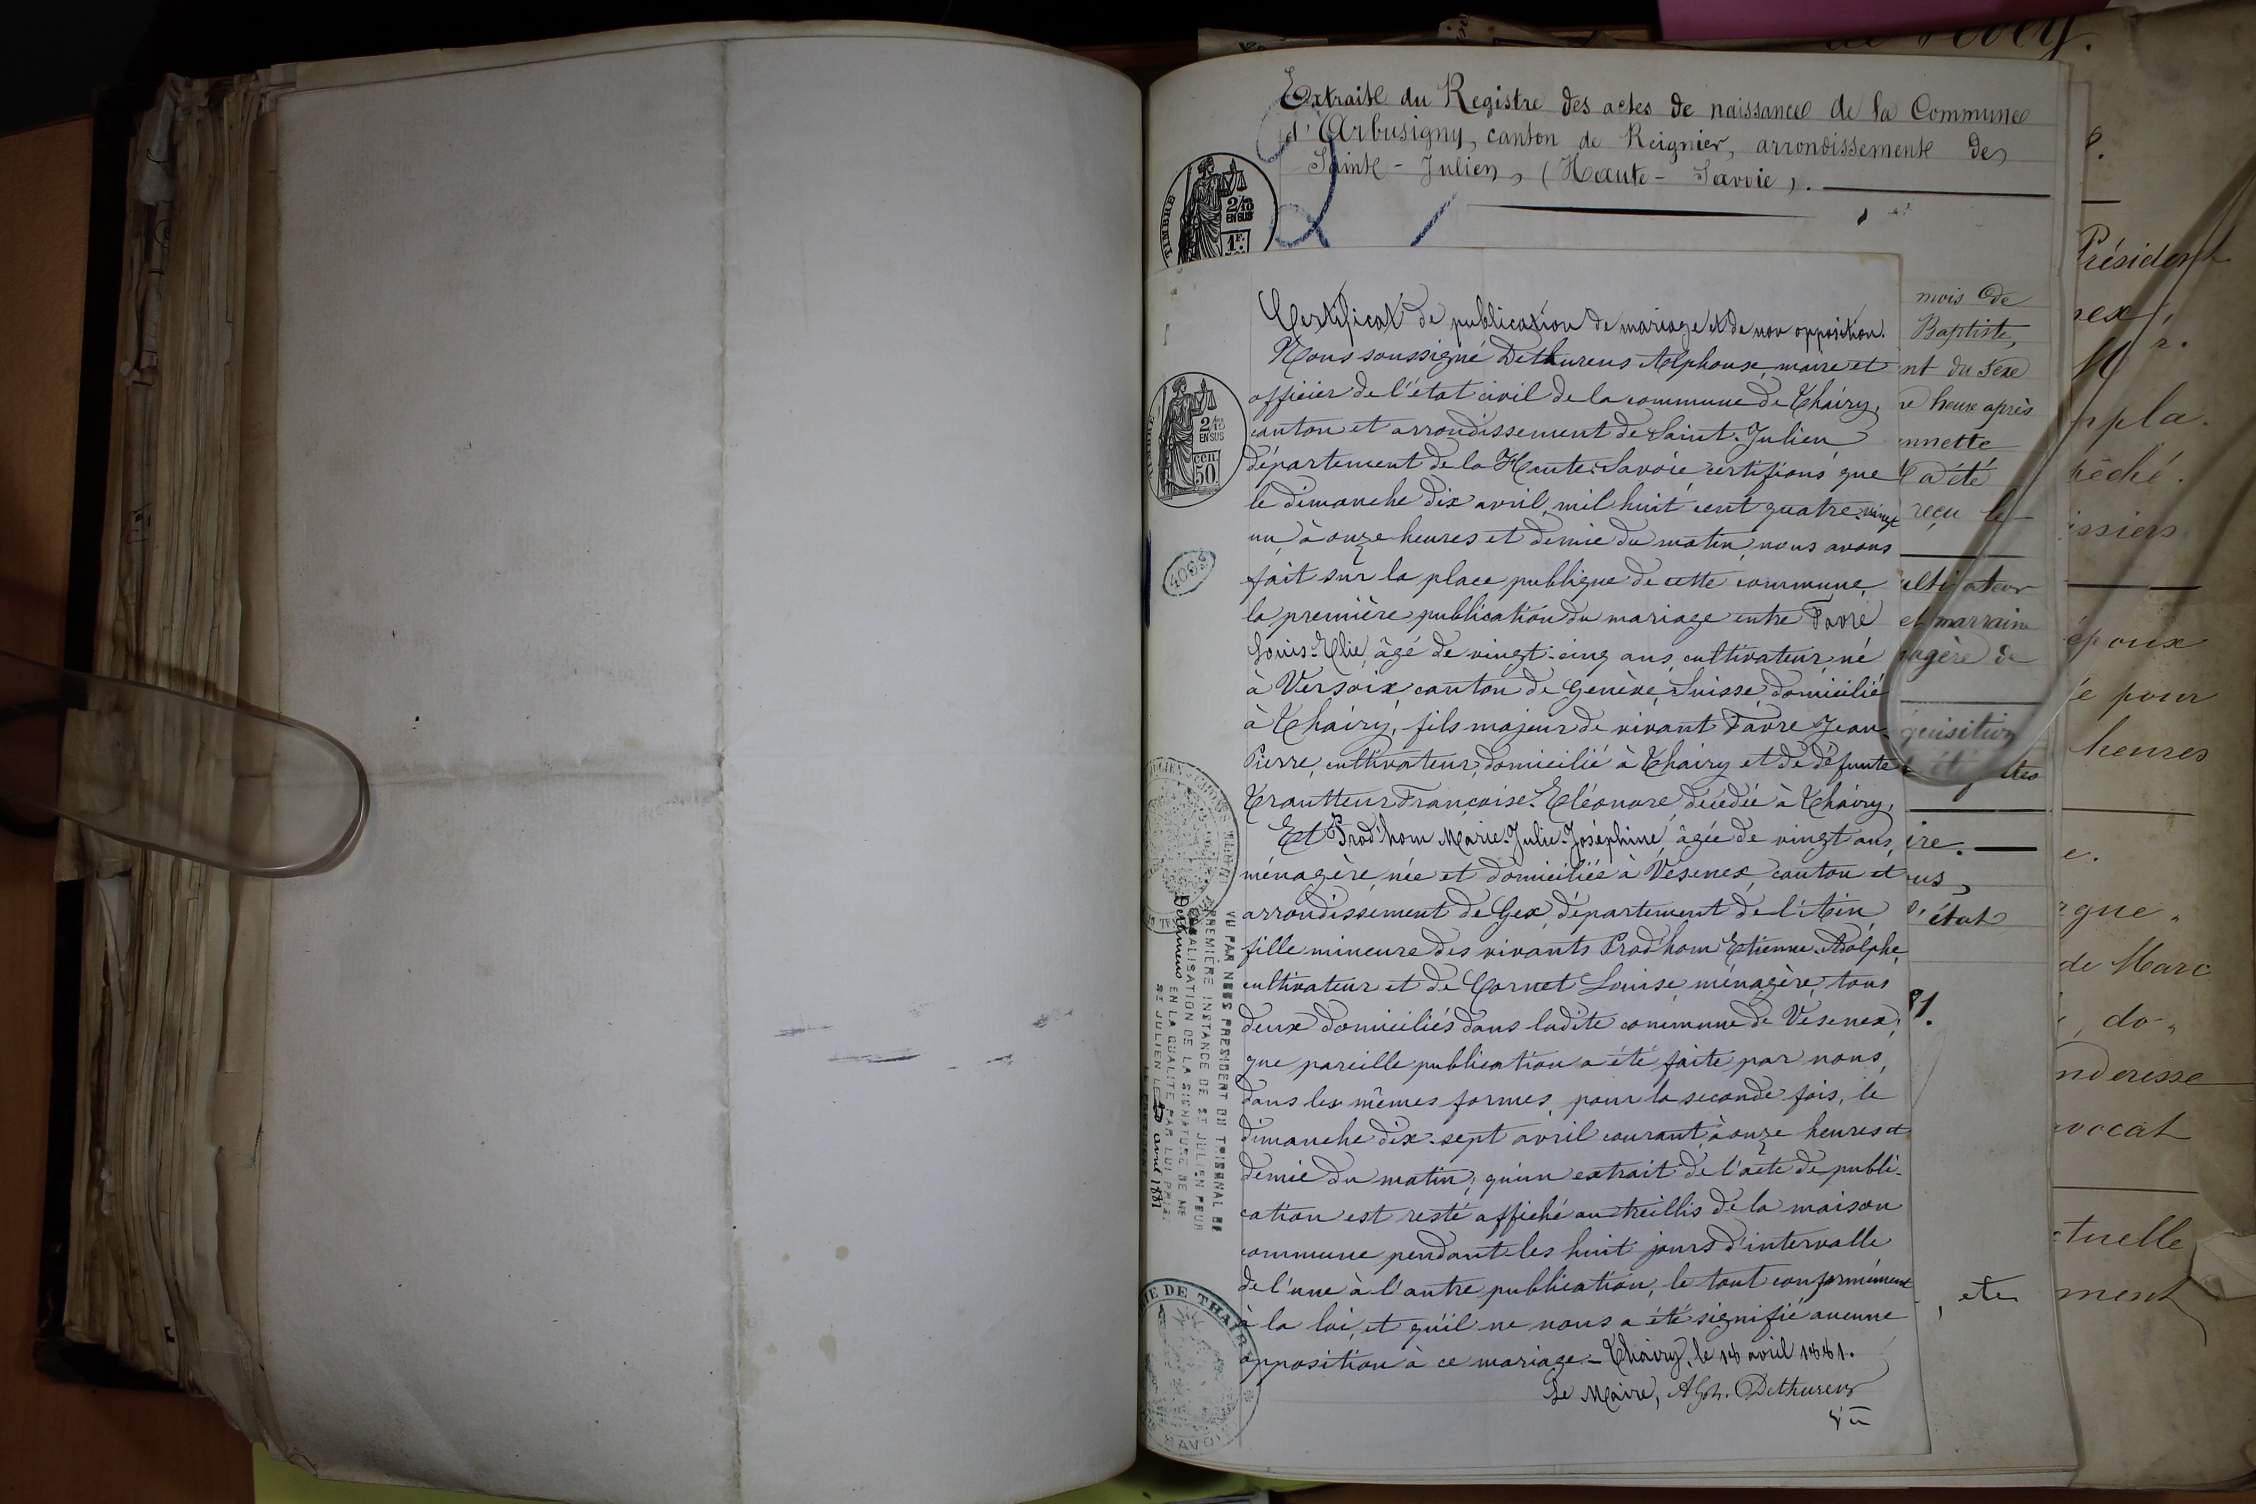 Extrait du Registre des actes de naissance de la Commune
d'Arbusigny, canton de Reignier, arrondissement de
Saint-Julien, (Haute-Savoie).
TIMBRE
2/10
EN SUS
1F.
Certificat de publication de mariage et de non opposition.
Nous soussigné Dethurens Alphonse, maire et
officier de l'état civil de la commune de Thairy,
canton et arrondissement de Saint-Julien
département de la Haute-Savoie certifions que
le dimanche dix avril, mil huit cent quatre-vingt
un, à onze heures et demie du matin, nous avons
fait sur la place publique de cette commune,
la première publication du mariage entre Favre
Louis-Elie, âgé de vingt-cinq ans, cultivateur, né
à Versoix, canton de Genève, Suisse, domicilié
à Thairy, fils majeur de vivant Favre Jean-
Pierre, cultivateur, domicilié à Thairy et de défunte
Françoise-Eléonore, décédée à Thairy,
Et Prod'hom Marie-Julie-Joséphine, âgée de vingt ans,
ménagère, née et domiciliée à Vésenex, canton et
arrondissement de Gex, département de l'Ain,
fille mineure des vivants Prod'hom Etienne-Adolphe,
cultivateur et de Cornet Louise, ménagère, tous
deux domiciliés dans ladite commune de Vésenex,
que pareille publication a été faite par nous,
dans les mêmes formes, pour la seconde fois, le
dimanche dix-sept avril courant, à onze heures et
demie du matin; qu'un extrait de l'acte de publi-
cation est resté affiché au treillis de la maison
commune pendant les huit jours d'intervalle
de l'une à l'autre publication, le tout conformément
à la loi, et qu'il ne nous a été signifié aucune
opposition à ce mariage.- Thairy, le 18 avril 1881.
Le Maire, Alph. Dethurens
2/10
EN SUS
cen
50
VU PAR NOUS PRESIDENT DU TRIBUNAL DE
PREMIÈRE INSTANCE DE ST JULIEN POUR
LEGALISATION DE LA SIGNATURE DE Mr
Dethurens EN LA QUALITE PAR LUI PRISE
ST JULIEN LE avril 1881
LE PRESIDENT
DE THAIRY
SAVOIE
mois de
Baptiste,
nt du sexe
heure après
nnette
a été
reçu le
ultivateur
et marraine
nagère de
quisition
ire.
us,
l'état
81.
, etc
Président
nex,
r.
pla.
issiers
époux
pour
heures
e.
gne.
de Marc
, do-
nderesse
vocat
ctuelle
ment